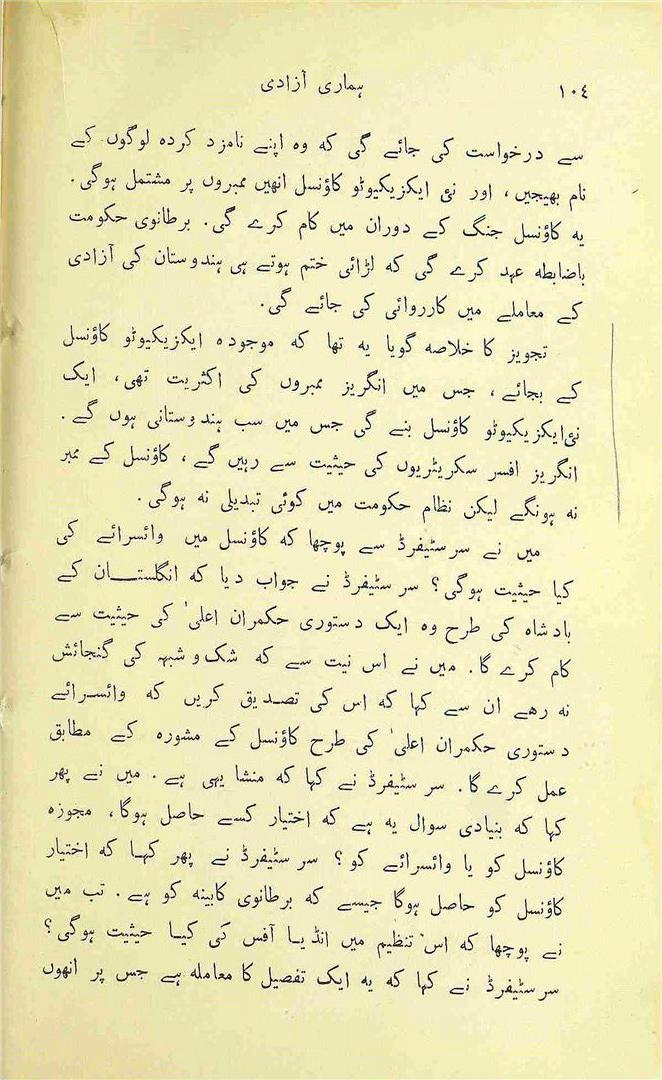 ۱۰٤ ہماری آزادی
سے درخواست کی جائے گی کہ وہ اپنے نامزد کردہ لوگوں کے
نام بھیجیں، اور نئی ایکزیکیوٹو کاؤنسل انھیں ممبروں پر مشتمل ہوگی۔
یہ کاؤنسل جنگ کے دوران میں کام کرے گی۔ برطانوی حکومت
باضابطہ عہد کرے گی کہ لڑائی ختم ہوتے ہی ہندوستان کی آزادی
کے معاملے میں کارروائی کی جائے گی۔
تجویز کا خلاصہ گویا یہ تھا کہ موجودہ ایکزیکیوٹو کاؤنسل
کے بجائے، جس میں انگریز ممبروں کی اکثریت تھی، ایک
نئی ایکزیکیوٹو کاؤنسل بنے گی جس میں سب ہندوستانی ہوں گے۔
انگریز افسر سکریٹریوں کی حیثیت سے رہیں گے، کاؤنسل کے ممبر
نہ ہونگے لیکن نظام حکومت میں کوئی تبدیلی نہ ہوگی۔
میں نے سرسٹیفرڈ سے پوچھا کہ کاؤنسل میں وائسرائے کی
کیا حیثیت ہوگی؟ سرسٹیفرڈ نے جواب دیا کہ انگلستان کے
بادشاہ کی طرح وہ ایک دستوری حکمران اعلیٰ کی حیثیت سے
کام کرے گا۔ میں نے اس نیت سے کہ شک و شبہہ کی گنجائش
نہ رہے ان سے کہا کہ اس کی تصدیق کریں کہ وائسرائے
دستوری حکمران اعلیٰ کی طرح کاؤنسل کے مشورہ کے مطابق
عمل کرے گا۔ سرسٹیفرڈ نے کہا کہ منشا یہی ہے۔ میں نے پھر
کہا کہ بنیادی سوال یہ ہے کہ اختیار کسے حاصل ہوگا، مجوزہ
کاؤنسل کو یا وائسرائے کو؟ سرسٹیفرڈ نے پھر کہا کہ اختیار
کاؤنسل کو حاصل ہوگا جیسے کہ برطانوی کابینہ کو ہے۔ تب میں
نے پوچھا کہ اس تنظیم میں انڈیا آفس کی کیا حیثیت ہوگی؟
سرسٹیفرڈ نے کہا کہ یہ ایک تفصیل کا معاملہ ہے جس پر انھوں